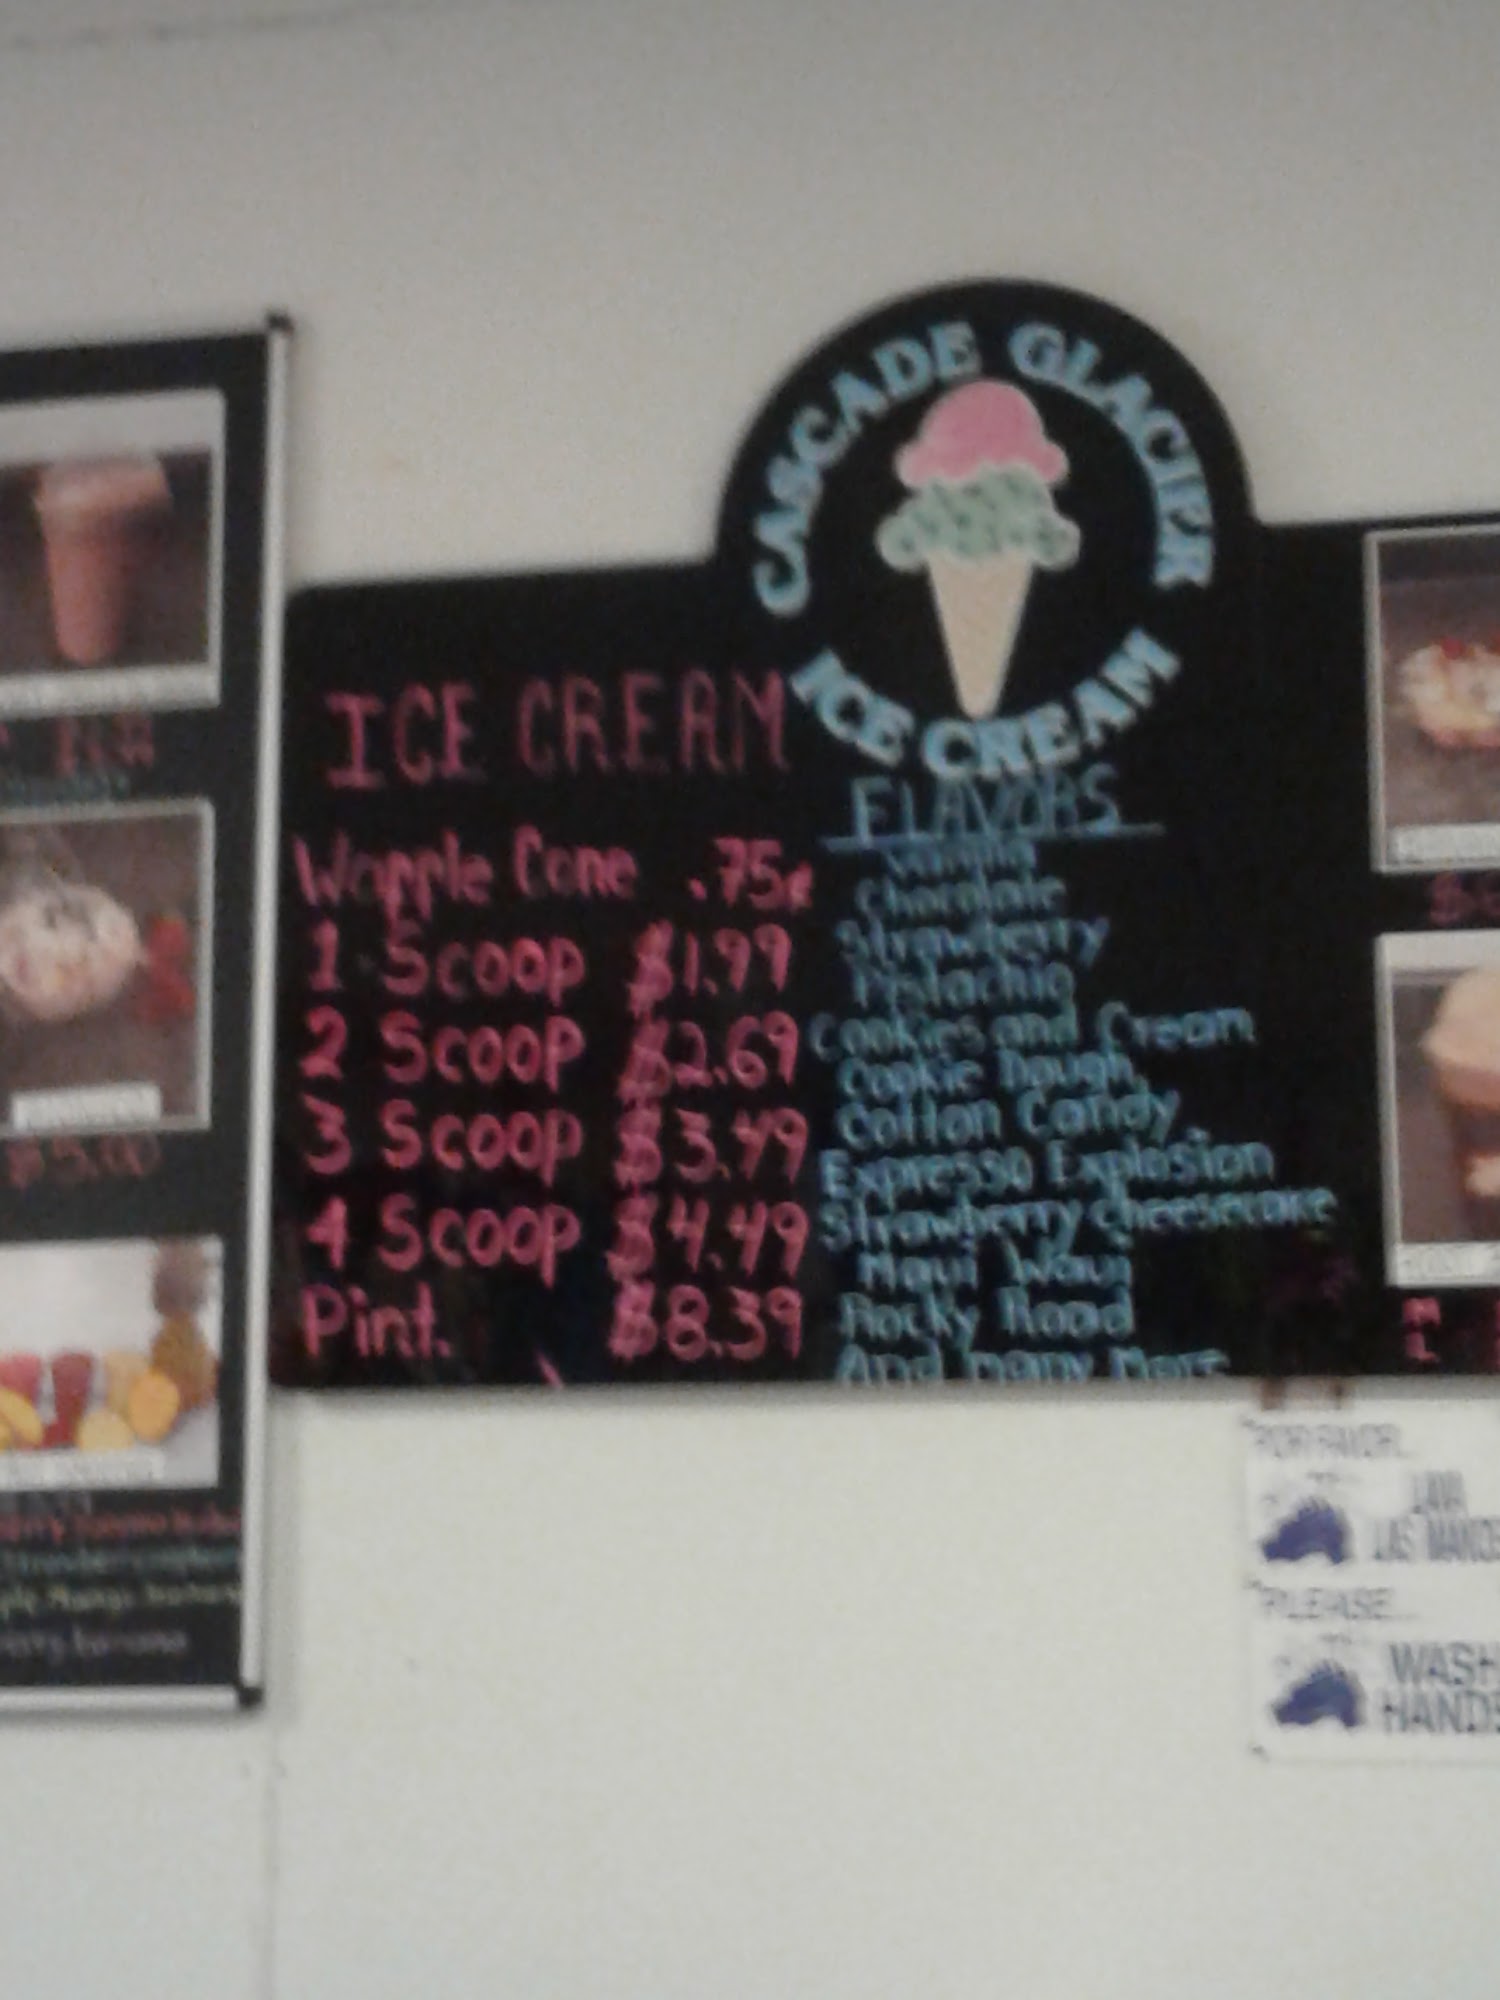 CASCADE GLACIER
ICE CREAM
ICE CREAM
Waffle Cone .75¢
1 Scoop $1.99
2 Scoop $2.69
3 Scoop $3.49
4 Scoop $4.49
Pint. $8.39
FLAVORS
Vanilla
Chocolate
Strawberry
Pistachio
Cookies and Cream
Cookie Dough
Cotton Candy
Expresso Explosion
Strawberry Cheesecake
Maui Waui
Rocky Road
And many More
$5.00
POR FAVOR...
LAVA
LAS MANOS
PLEASE...
WASH
HANDS